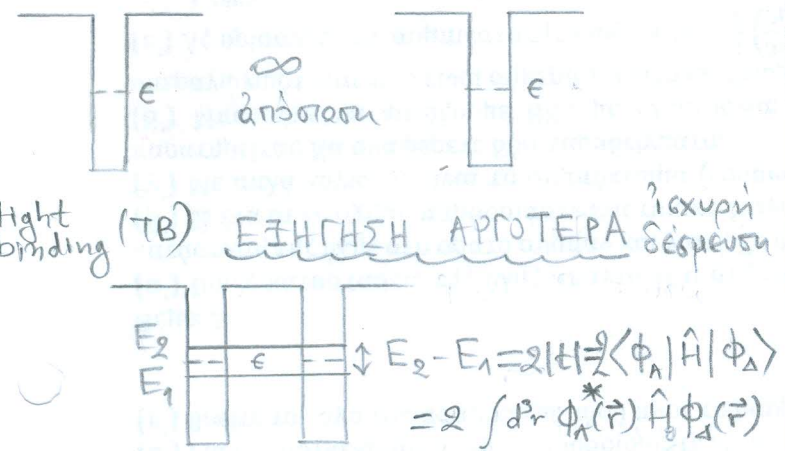 ε ∞ ε
ἀπόσταση
tight binding (TB) ΕΞΗΓΗΣΗ ΑΡΓΟΤΕΡΑ ἰσχυρή δέσμευση
E₂ ε E₂ - E₁ = 2|t| = 2⟨Φ_Λ|Ĥ|Φ_Δ⟩
E₁
= 2 ∫d³r Φ_Λ*(r⃗) Ĥ Φ_Δ(r⃗)